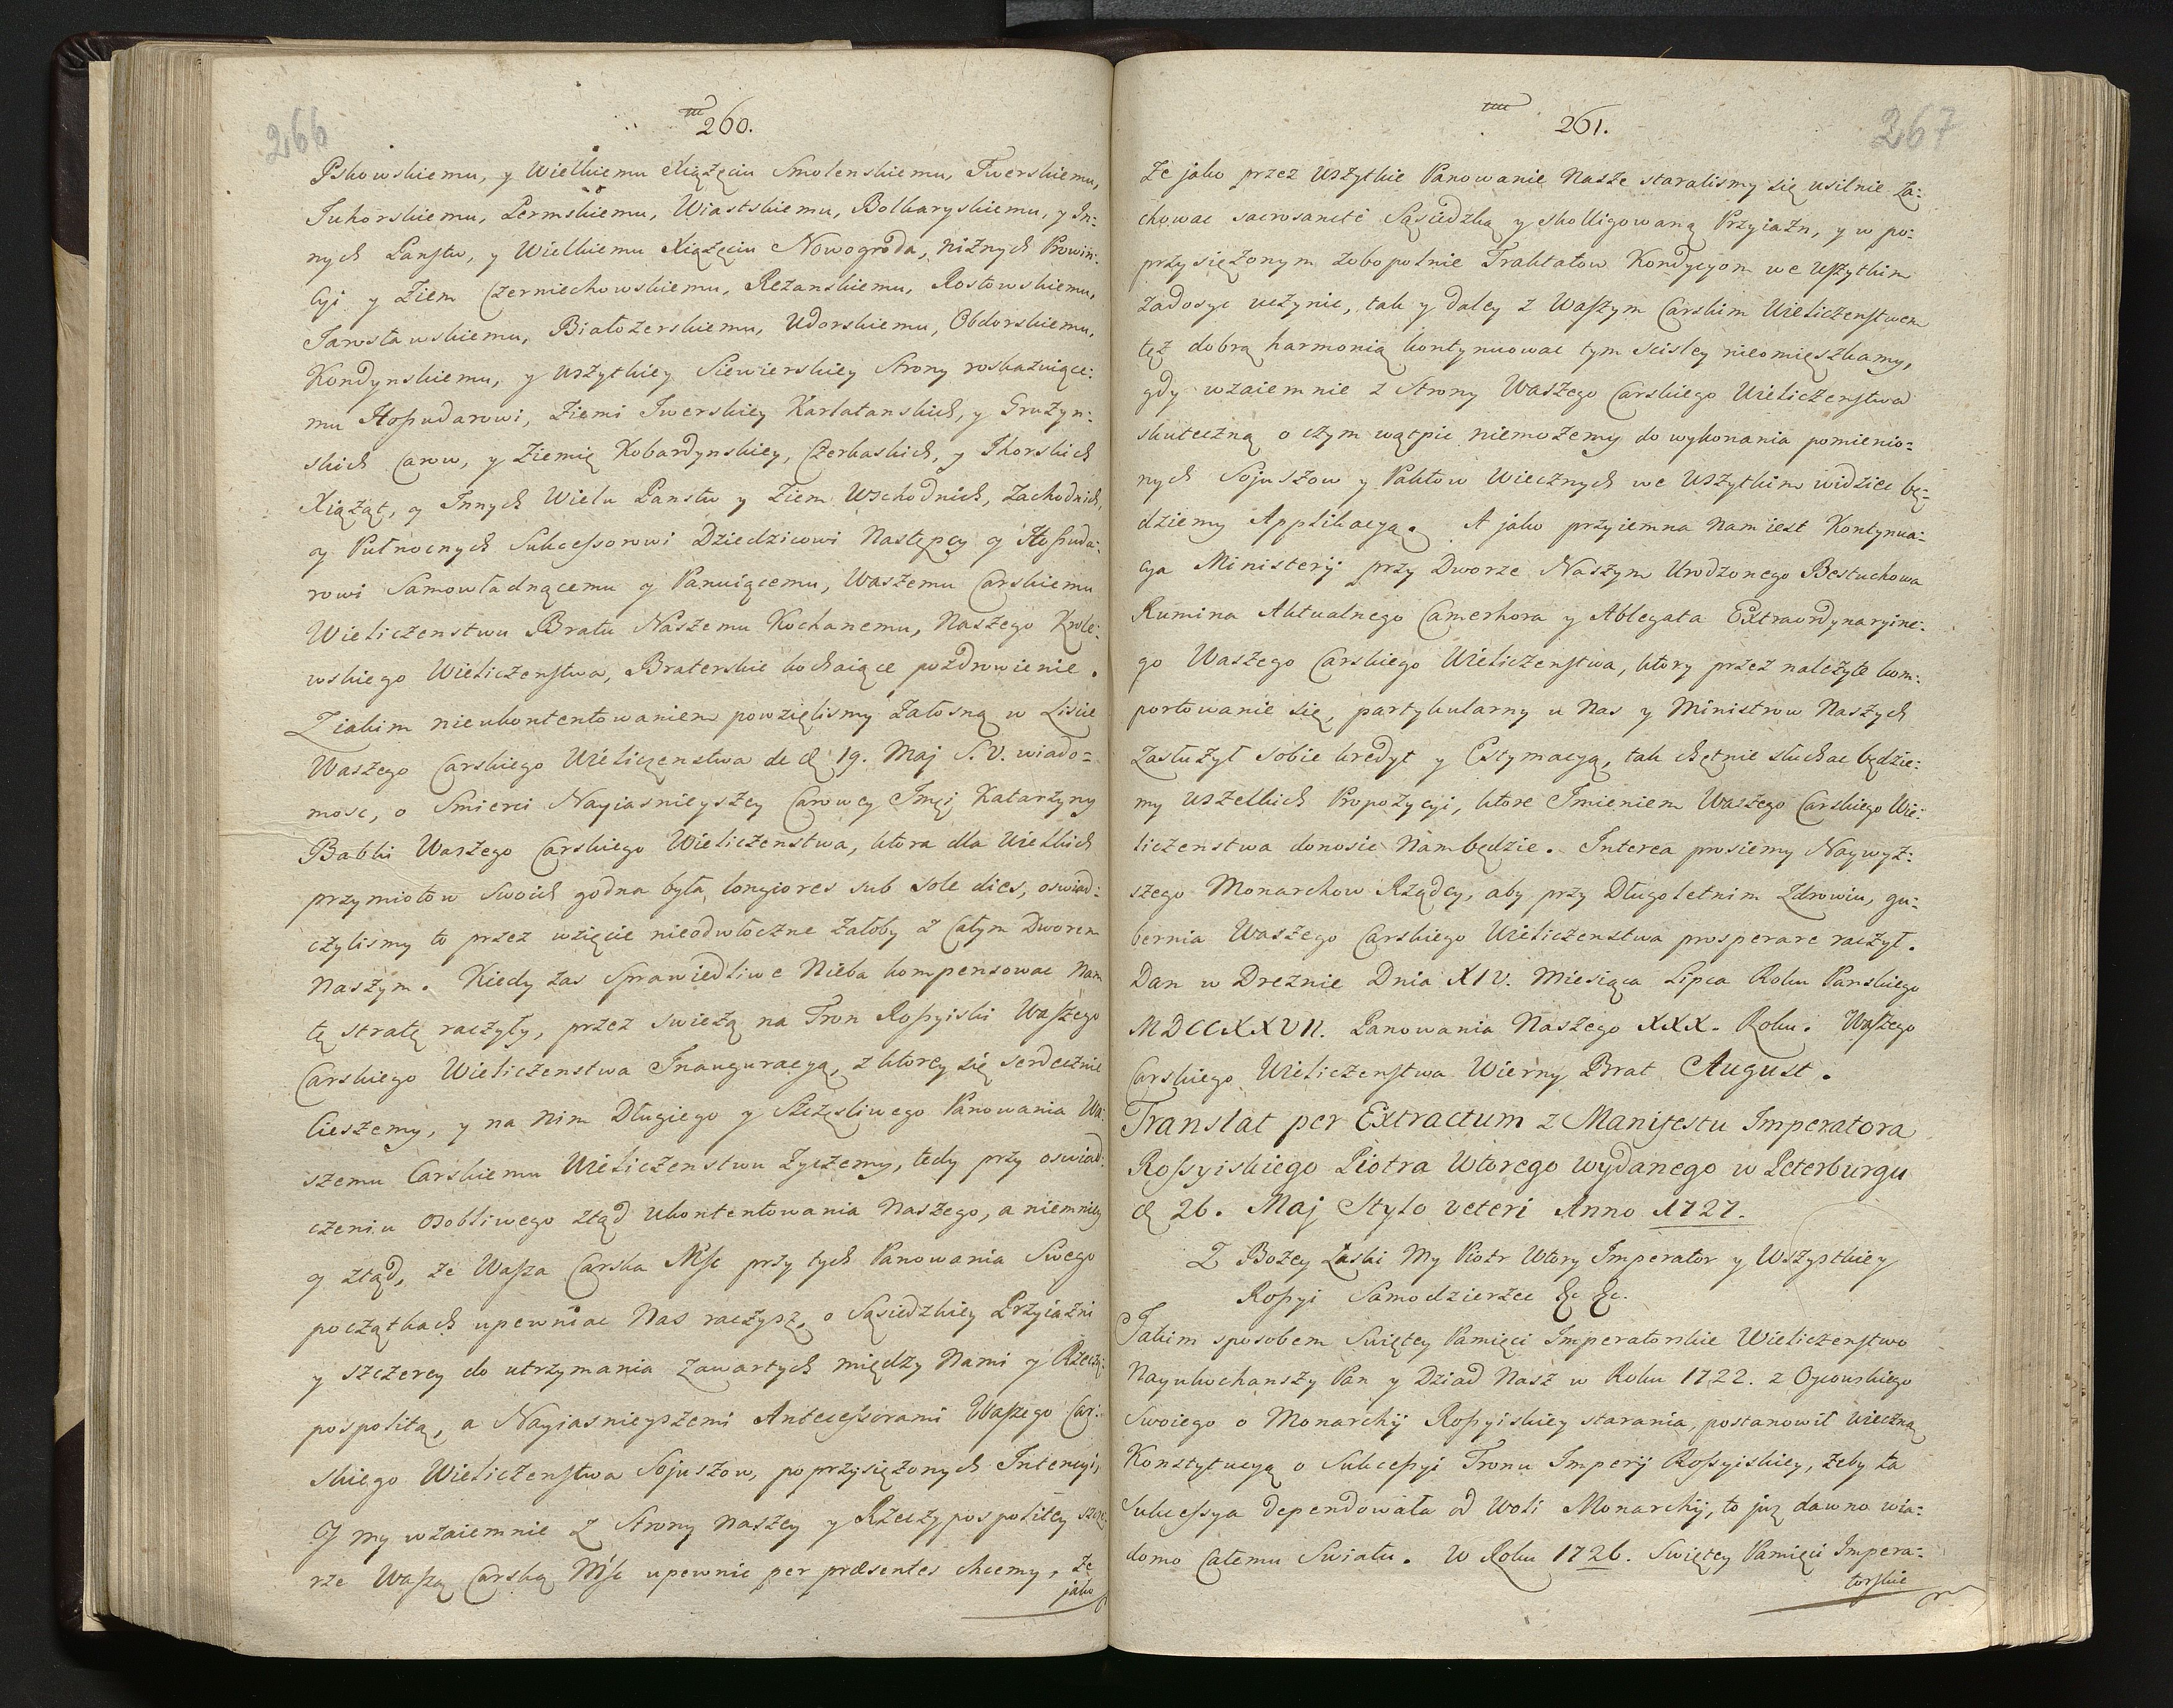 266
260.
Pskowskiemu, y Wielkiemu Xiążęciu Smolenskiemu, Twerskiemu,
Juhorskiemu, Permskiemu, Wiastskiemu, Bolharyskiemu, y In:
nych Panstw, y Wielkiemu Xiążęciu Nowogroda, niżnych Prowin:
cyi y Ziem Czerniechowskiemu, Rezanskiemu, Rostowskiemu,
Jarosławskiemu, Białozerskiemu, Udorskiemu, Obdorskiemu,
Kondynskiemu, y Wszytkiey Siewierskiey Strony roskazuiące:
mu Hospudarowi, Ziemi Iwerskiey Kartatanskich, y Gruzyn:
skich Carow, y Ziemię Kobardynskiey, Czerkaskich, y Thorskich
Xiążąt, y Innych Wielu Panstw y Ziem Wschodnich, Zachodnich,
y Pułnocnych Sukcessorowi Dziedzicowi Następcy y Hospuda:
rowi Samowładnącemu y Panuiącemu, Waszemu Carskiemu
Wieliczenstwu Bratu Naszemu Kochanemu, Naszego Krole:
wskiego Wieliczenstwa, Braterskie kochaiące pozdrowienie.
Z iakim nieukontentowaniem powzięlismy żałosną w Liscie
Waszego Carskiego Wieliczenstwa de d 19. Maj S.V. wiado=
mosc, o Smierci Nayiasnieyszey Carowey Imęi Katarzyny
Babki Waszego Carskiego Wieliczenstwa, ktora dla Wielkich
przymiotow Swoich godna była, longiores sub sole dies, oswiad:
czylismy to przez wzięcie nieodwłoczne żałoby z Całym Dworem
Naszym. Kiedy zas Sprawiedliwe Nieba kompensowac Nam
tę stratę raczyły, przez swieżą na Tron Rossyiski Waszego
Carskiego Wieliczenstwa Inauguracyą, z ktorey się serdecznie
Cieszemy, y na nim Długiego y Szczęsliwego Panowania Wa:
szemu Carskiemu Wieliczenstwu życzemy, tedy przy oswiad:
czeniu osobliwego ztąd ukontentowania Naszego, a niemniey
y ztąd, że Wasza Carska Msc przy tych Panowania Swego
początkach upewniac Nas raczysz, o Sąsiedzkiey Przyiazni
y szczerey do utrzymania Zawartych między Nami y Rzeczą:
pospolitą, a Nayiasnieyszemi Antecessorami Waszego Car:
skiego Wieliczenstwa Sojuszow, poprzysiężonych Intencyi,
Y my wzaiemnie z Strony Naszey y Rzeczypospolitey szcze:
rze Waszą Carską Msc upewnic per præsentes chcemy, że
jako
267
261.
Że jako przez Wszytkie Panowanie Nasze staralismy się usilnie Za:
chowac sacrosancte Sąsiedzką y skolligowaną Przyiazn, y w po:
przysiężonym zobopolnie Traktatow Kondycyom we Wszytkim
zadosyc uczynic, tak y daley z Waszym Carskim Wieliczenstwem
tęż dobrą harmonią kontynuowac tym scisley nieomięszkamy,
gdy wzaiemnie z Strony Waszego Carskiego Wieliczenstwa
skuteczną o czym wątpic niemożemy do wykonania pomienio=
nych Sojuszow y Paktow Wiecznych we Wszytkim widziec bę=
dziemy Applikacyą. A jako przyiemna Nam iest Kontynua:
cya Ministerij przy Dworze Naszym Urodzonego Bestuchowa
Rumina Aktualnego Camerhora y Ablegata Extraordynaryine:
go Waszego Carskiego Wieliczenstwa, ktory przez należyte kom:
portowanie się, partykularny u Nas y Ministrow Naszych
Zasłużył sobie kredyt y Estymacyą, tak chętnie słuchac będzie:
my wszelkich Propozycyi, ktore Imieniem Waszego Carskiego Wie:
liczenstwa donosic Nam będzie. Interea prosiemy Naywyż:
szego Monarchow Rządcy, aby przy Długoletnim Zdrowiu, gu:
bernia Waszego Carskiego Wieliczenstwa prosperare raczył.
Dan w Dreznie Dnia XIV. Miesiąca Lipca Roku Panskiego
MDCCXXVII. Panowania Naszego XXX. Roku. Waszego
Carskiego Wieliczenstwa Wierny Brat August.
Translat per Extractum z Manifestu Imperatora
Rossyiskiego Piotra Wtorego wydanego w Peterburgu
d 26. Maj Stylo veteri Anno 1727.
Z Bożey Łaski My Piotr Wtory Imperator y Wszystkiey
Rossyi Samodzierzce &c &c.
Takim sposobem Swiętey Pamięci Imperatorskie Wieliczenstwo
Nayukochanszy Pan y Dziad Nasz w Roku 1722. z Oycowskiego
Swoiego o Monarchij Rossyiskiey starania, postanowił wieczną
Konstytucyą o Sukcessyi Tronu Imperij Rossyiskiey, żeby ta
Sukcessya dependowała od Woli Monarchij, to już dawno wia:
domo Całemu Swiatu. W Roku 1726. Swiętey Pamięci Impera:
torskie